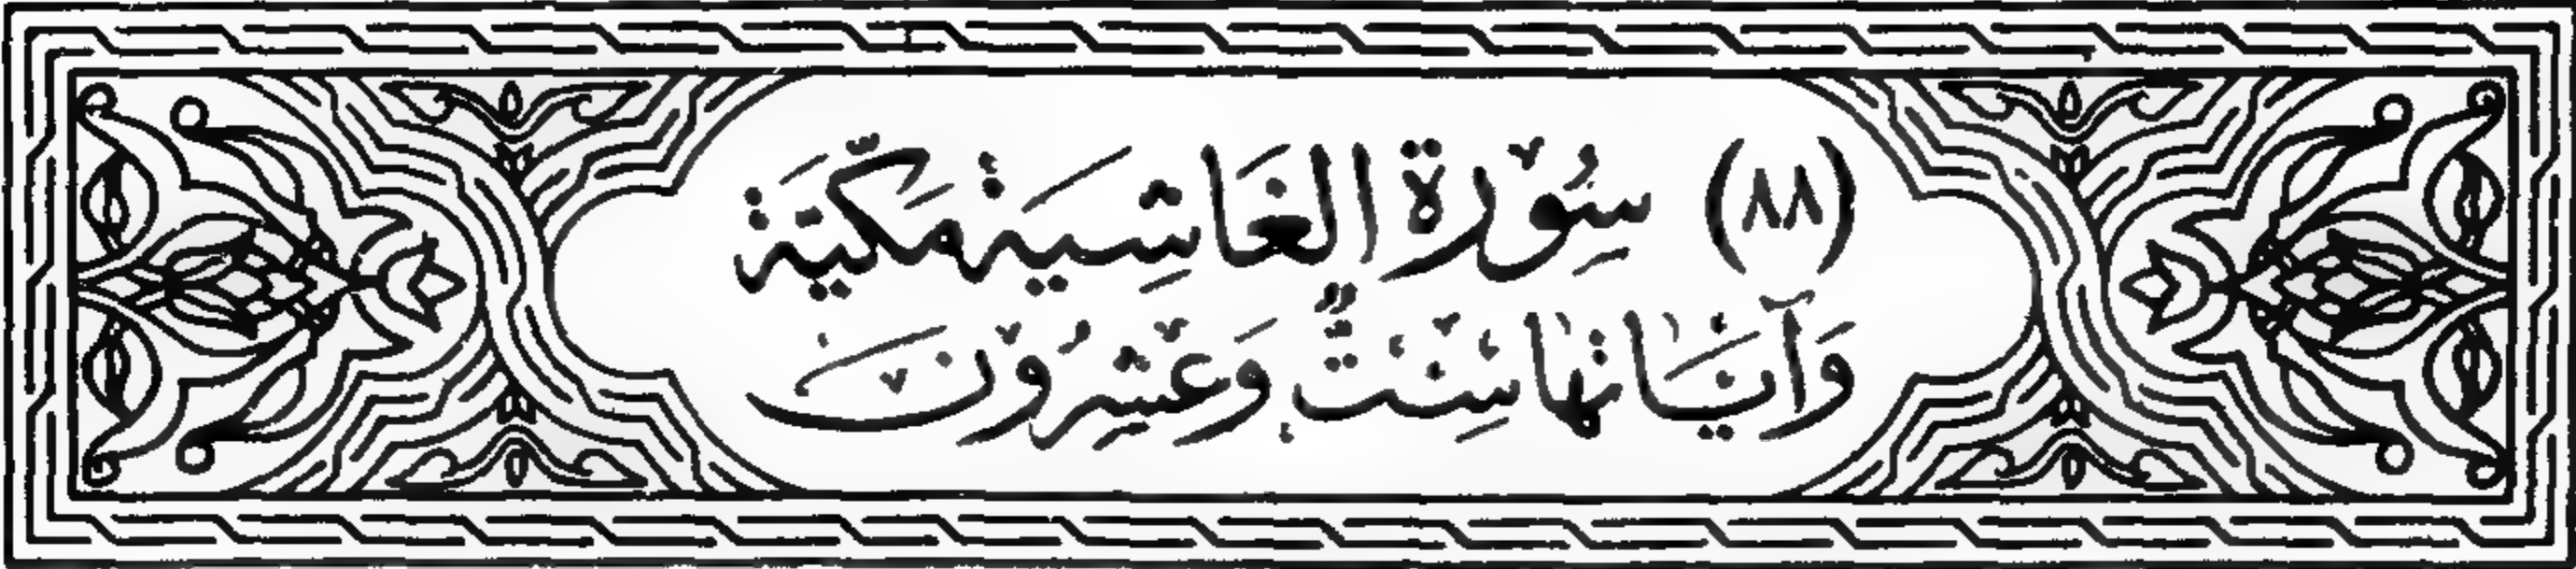 (٨٨) سُورَة الغَاشِيَة مَكِّيَّة
وَآيَاتُهَا سِتٌّ وَعِشْرُونَ